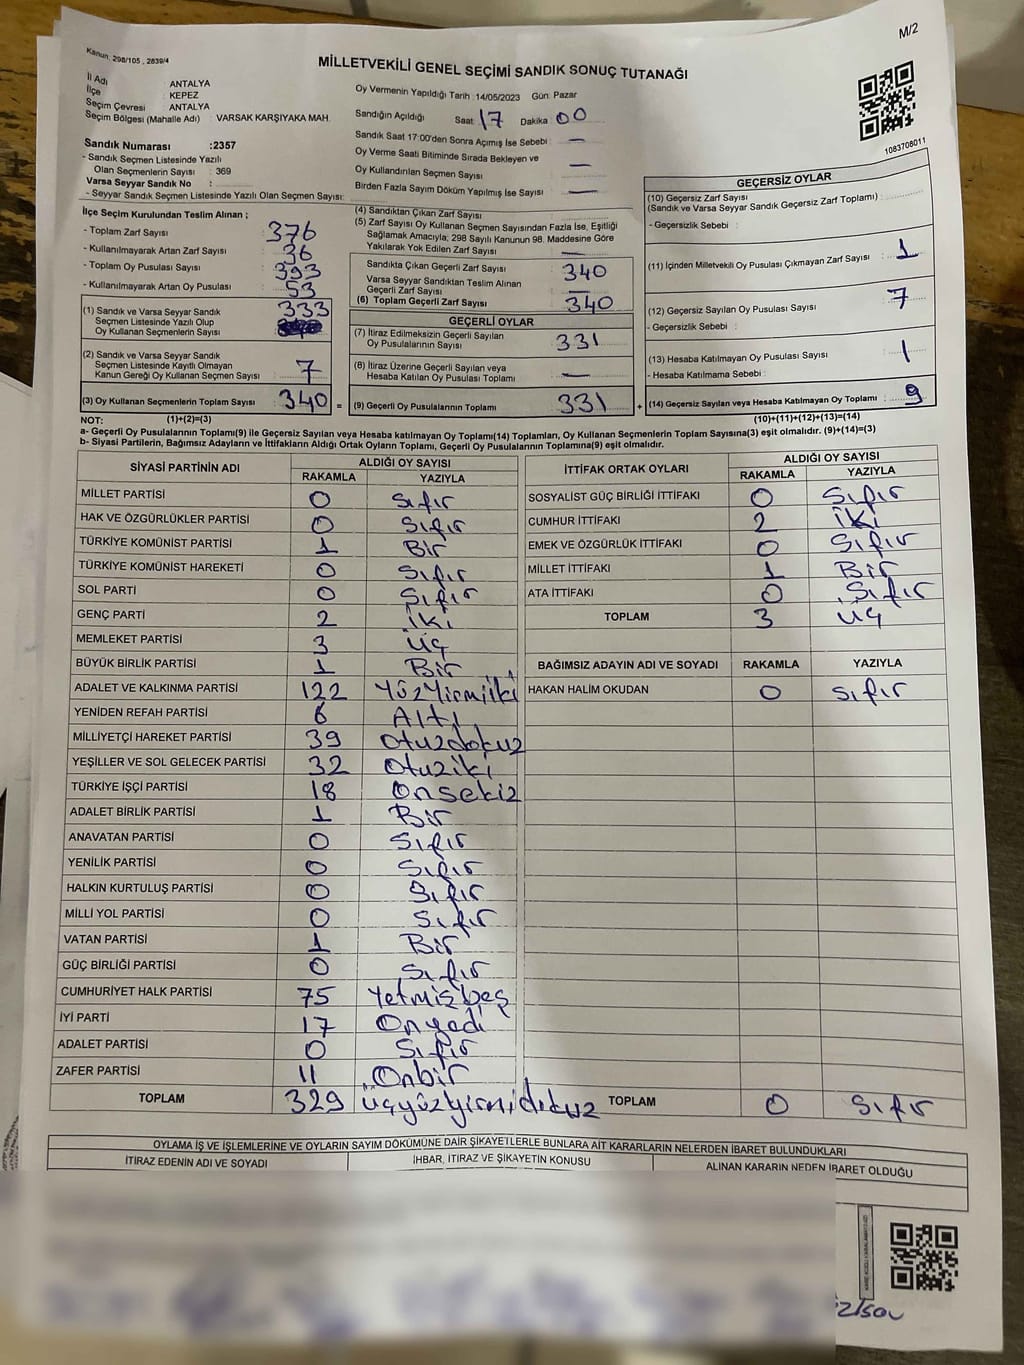 M/2
Kanun, 298/105 , 2839/4
MİLLETVEKİLİ GENEL SEÇİMİ SANDIK SONUÇ TUTANAĞI
İl Adı : ANTALYA
İlçe : KEPEZ
Seçim Çevresi : ANTALYA
Seçim Bölgesi (Mahalle Adı) : VARSAK KARŞIYAKA MAH.
Sandık Numarası :2357
- Sandık Seçmen Listesinde Yazılı
Olan Seçmenlerin Sayısı : 369
Varsa Seyyar Sandık No :
- Seyyar Sandık Seçmen Listesinde Yazılı Olan Seçmen Sayısı:
Oy Vermenin Yapıldığı Tarih :14/05/2023 Gün: Pazar
Sandığın Açıldığı Saat 17 Dakika 00
Sandık Saat 17:00'den Sonra Açımış İse Sebebi : —
Oy Verme Saati Bitiminde Sırada Bekleyen ve
Oy Kullandırılan Seçmen Sayısı : —
Birden Fazla Sayım Döküm Yapılmış İse Sayısı : —
1083708011
İlçe Seçim Kurulundan Teslim Alınan ;
- Toplam Zarf Sayısı : 376
- Kullanılmayarak Artan Zarf Sayısı : 36
- Toplam Oy Pusulası Sayısı : 393
- Kullanılmayarak Artan Oy Pusulası : 53
(1) Sandık ve Varsa Seyyar Sandık 333
Seçmen Listesinde Yazılı Olup
Oy Kullanan Seçmenlerin Sayısı :
(2) Sandık ve Varsa Seyyar Sandık
Seçmen Listesinde Kayıtlı Olmayan
Kanun Gereği Oy Kullanan Seçmen Sayısı : 7
(3) Oy Kullanan Seçmenlerin Toplam Sayısı : 340 =
(4) Sandıktan Çıkan Zarf Sayısı :
(5) Zarf Sayısı Oy Kullanan Seçmen Sayısından Fazla İse, Eşitliği
Sağlamak Amacıyla; 298 Sayılı Kanunun 98. Maddesine Göre
Yakılarak Yok Edilen Zarf Sayısı : —
Sandıkta Çıkan Geçerli Zarf Sayısı : 340
Varsa Seyyar Sandıktan Teslim Alınan
Geçerli Zarf Sayısı : —
(6) Toplam Geçerli Zarf Sayısı : 340
GEÇERLİ OYLAR
(7) İtiraz Edilmeksizin Geçerli Sayılan
Oy Pusulalarının Sayısı : 331
(8) İtiraz Üzerine Geçerli Sayılan veya
Hesaba Katılan Oy Pusulası Toplamı : —
(9) Geçerli Oy Pusulalarının Toplamı : 331 +
GEÇERSİZ OYLAR
(10) Geçersiz Zarf Sayısı
(Sandık ve Varsa Seyyar Sandık Geçersiz Zarf Toplamı) :
- Geçersizlik Sebebi :
(11) İçinden Milletvekili Oy Pusulası Çıkmayan Zarf Sayısı : 1
(12) Geçersiz Sayılan Oy Pusulası Sayısı : 7
- Geçersizlik Sebebi :
(13) Hesaba Katılmayan Oy Pusulası Sayısı : 1
- Hesaba Katılmama Sebebi :
(14) Geçersiz Sayılan veya Hesaba Katılmayan Oy Toplamı : 9
NOT: (1)+(2)=(3) (10)+(11)+(12)+(13)=(14)
a- Geçerli Oy Pusulalarının Toplamı(9) ile Geçersiz Sayılan veya Hesaba katılmayan Oy Toplamı(14) Toplamları, Oy Kullanan Seçmenlerin Toplam Sayısına(3) eşit olmalıdır. (9)+(14)=(3)
b- Siyasi Partilerin, Bağımsız Adayların ve İttifakların Aldığı Ortak Oyların Toplamı, Geçerli Oy Pusulalarının Toplamına(9) eşit olmalıdır.
SİYASİ PARTİNİN ADI ALDIĞI OY SAYISI
RAKAMLA YAZIYLA
MİLLET PARTİSİ 0 Sıfır
HAK VE ÖZGÜRLÜKLER PARTİSİ 0 Sıfır
TÜRKİYE KOMÜNİST PARTİSİ 1 Bir
TÜRKİYE KOMÜNİST HAREKETİ 0 Sıfır
SOL PARTİ 0 Sıfır
GENÇ PARTİ 2 İki
MEMLEKET PARTİSİ 3 Üç
BÜYÜK BİRLİK PARTİSİ 1 Bir
ADALET VE KALKINMA PARTİSİ 122 Yüzyirmiiki
YENİDEN REFAH PARTİSİ 6 Altı
MİLLİYETÇİ HAREKET PARTİSİ 39 Otuzdokuz
YEŞİLLER VE SOL GELECEK PARTİSİ 32 Otuziki
TÜRKİYE İŞÇİ PARTİSİ 18 Onsekiz
ADALET BİRLİK PARTİSİ 1 Bir
ANAVATAN PARTİSİ 0 Sıfır
YENİLİK PARTİSİ 0 Sıfır
HALKIN KURTULUŞ PARTİSİ 0 Sıfır
MİLLİ YOL PARTİSİ 0 Sıfır
VATAN PARTİSİ 1 Bir
GÜÇ BİRLİĞİ PARTİSİ 0 Sıfır
CUMHURİYET HALK PARTİSİ 75 Yetmişbeş
İYİ PARTİ 17 Onyedi
ADALET PARTİSİ 0 Sıfır
ZAFER PARTİSİ 11 Onbir
TOPLAM 329 üçyüzyirmidokuz
İTTİFAK ORTAK OYLARI ALDIĞI OY SAYISI
RAKAMLA YAZIYLA
SOSYALİST GÜÇ BİRLİĞİ İTTİFAKI 0 Sıfır
CUMHUR İTTİFAKI 2 İki
EMEK VE ÖZGÜRLÜK İTTİFAKI 0 Sıfır
MİLLET İTTİFAKI 1 Bir
ATA İTTİFAKI 0 Sıfır
TOPLAM 3 Üç
BAĞIMSIZ ADAYIN ADI VE SOYADI RAKAMLA YAZIYLA
HAKAN HALİM OKUDAN 0 Sıfır
TOPLAM 0 Sıfır
OYLAMA İŞ VE İŞLEMLERİNE VE OYLARIN SAYIM DÖKÜMÜNE DAİR ŞİKAYETLERLE BUNLARA AİT KARARLARIN NELERDEN İBARET BULUNDUKLARI
İTİRAZ EDENİN ADI VE SOYADI İHBAR, İTİRAZ VE ŞİKAYETİN KONUSU ALINAN KARARIN NEDEN İBARET OLDUĞU